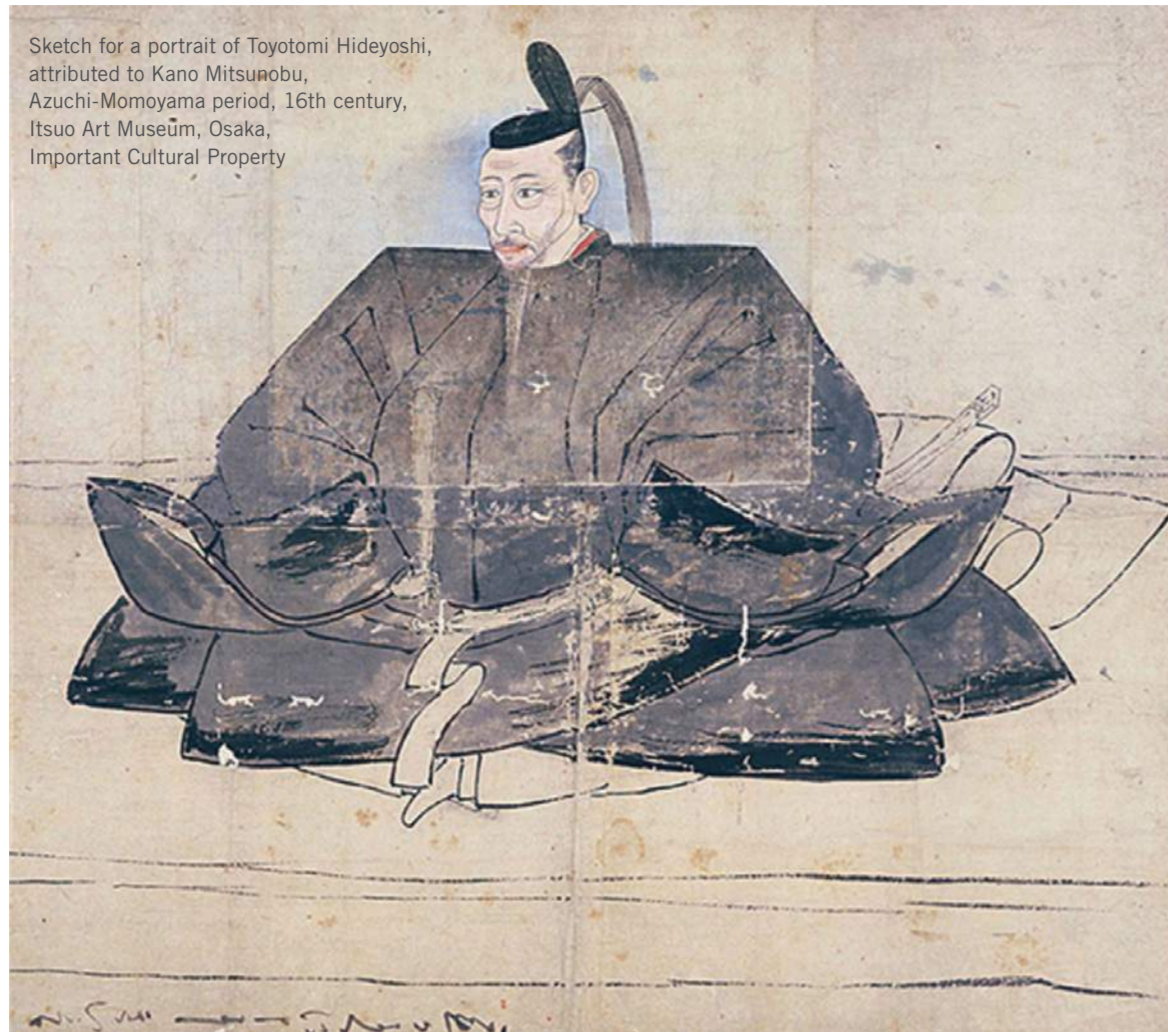 Sketch for a portrait of Toyotomi Hideyoshi,
attributed to Kano Mitsunobu,
Azuchi-Momoyama period, 16th century,
Itsuo Art Museum, Osaka,
Important Cultural Property